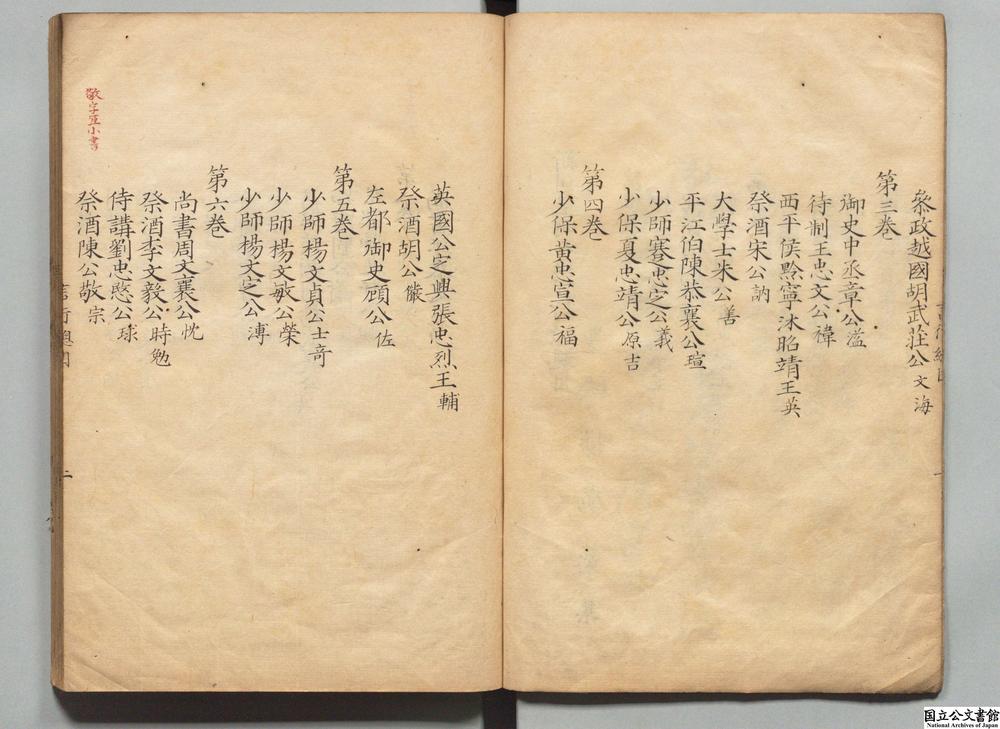 參政越國胡武莊公文海
第三卷
御史中丞章公溢
待制王忠文公禕
西平侯黔寧沐昭靖王英
祭酒宋公訥
大學士朱公善
平江伯陳恭襄公瑄
少師蹇忠定公義
少保夏忠靖公原吉
第四卷
少保黃忠宣公福
英國公定興張忠烈王輔
祭酒胡公儼
左都御史顧公佐
第五卷
少師楊文貞公士奇
少師楊文敏公榮
少師楊文定公溥
第六卷
尚書周文襄公忱
祭酒李文毅公時勉
侍講劉忠愍公球
祭酒陳公敬宗
二
国立公文書館
National Archives of Japan